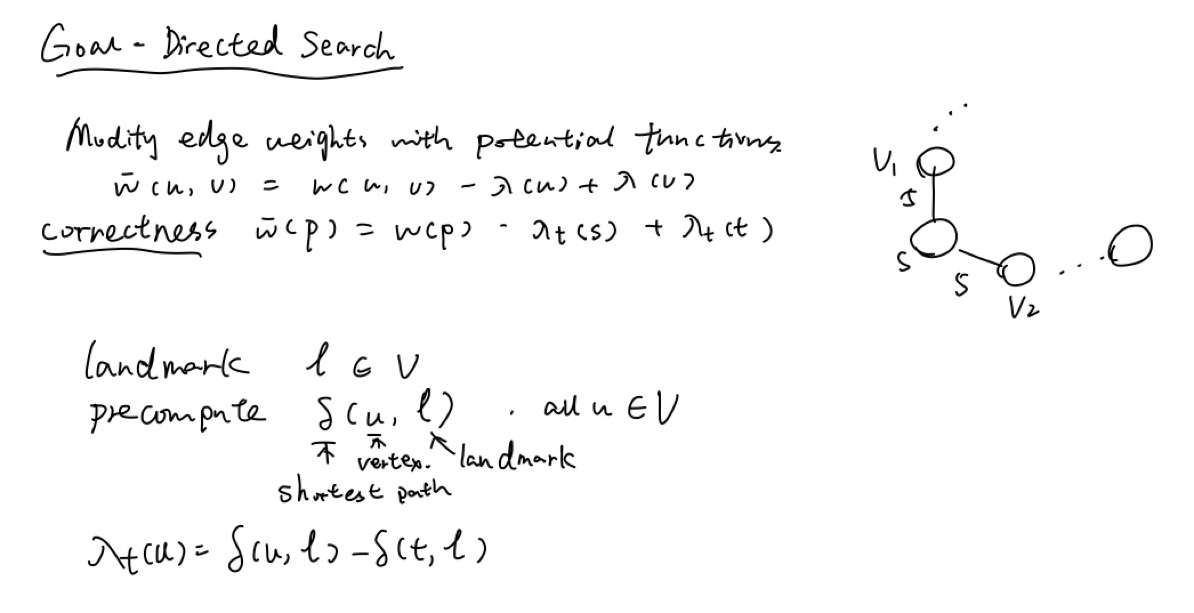 Goal - Directed Search
Modity edge weights with potential functions
w̄ (u, v) = w(u, v) - λ(u) + λ(v)
correctness w̄(p) = w(p) - λt(s) + λt(t)
V1
5
S
5
V2
landmark l ∈ V
precompute δ(u, l) . all u ∈ V
vertex. landmark
shortest path
λt(u) = δ(u, l) - δ(t, l)